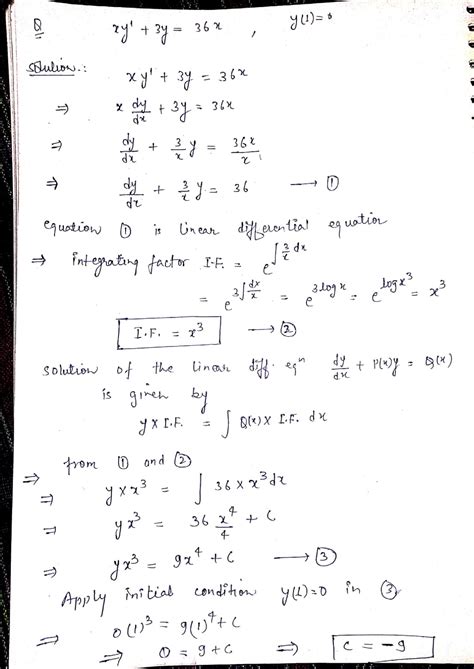 Q xy' + 3y = 36x , y(1)=0
Solution.:
xy' + 3y = 36x
⇒ x dy/dx + 3y = 36x
⇒ dy/dx + 3/x y = 36x/x
⇒ dy/dx + 3/x y = 36 → ①
equation ① is linear differential equation
⇒ Integrating factor I.F. = e^∫3/x dx
= e^3∫dx/x = e^3logx = e^logx³ = x³
I.F. = x³ → ②
solution of the linear diff. eqn dy/dx + P(x)y = Q(x)
is given by
y x I.F. = ∫ Q(x) x I.F. dx
⇒ from ① and ②
⇒ y x x³ = ∫ 36 x x³ dx
⇒ yx³ = 36 x⁴/4 + C
⇒ yx³ = 9x⁴ + C → ③
Apply initial condition y(1)=0 in ③
⇒ 0(1)³ = 9(1)⁴ + C
⇒ 0 = 9 + C ⇒ C = -9